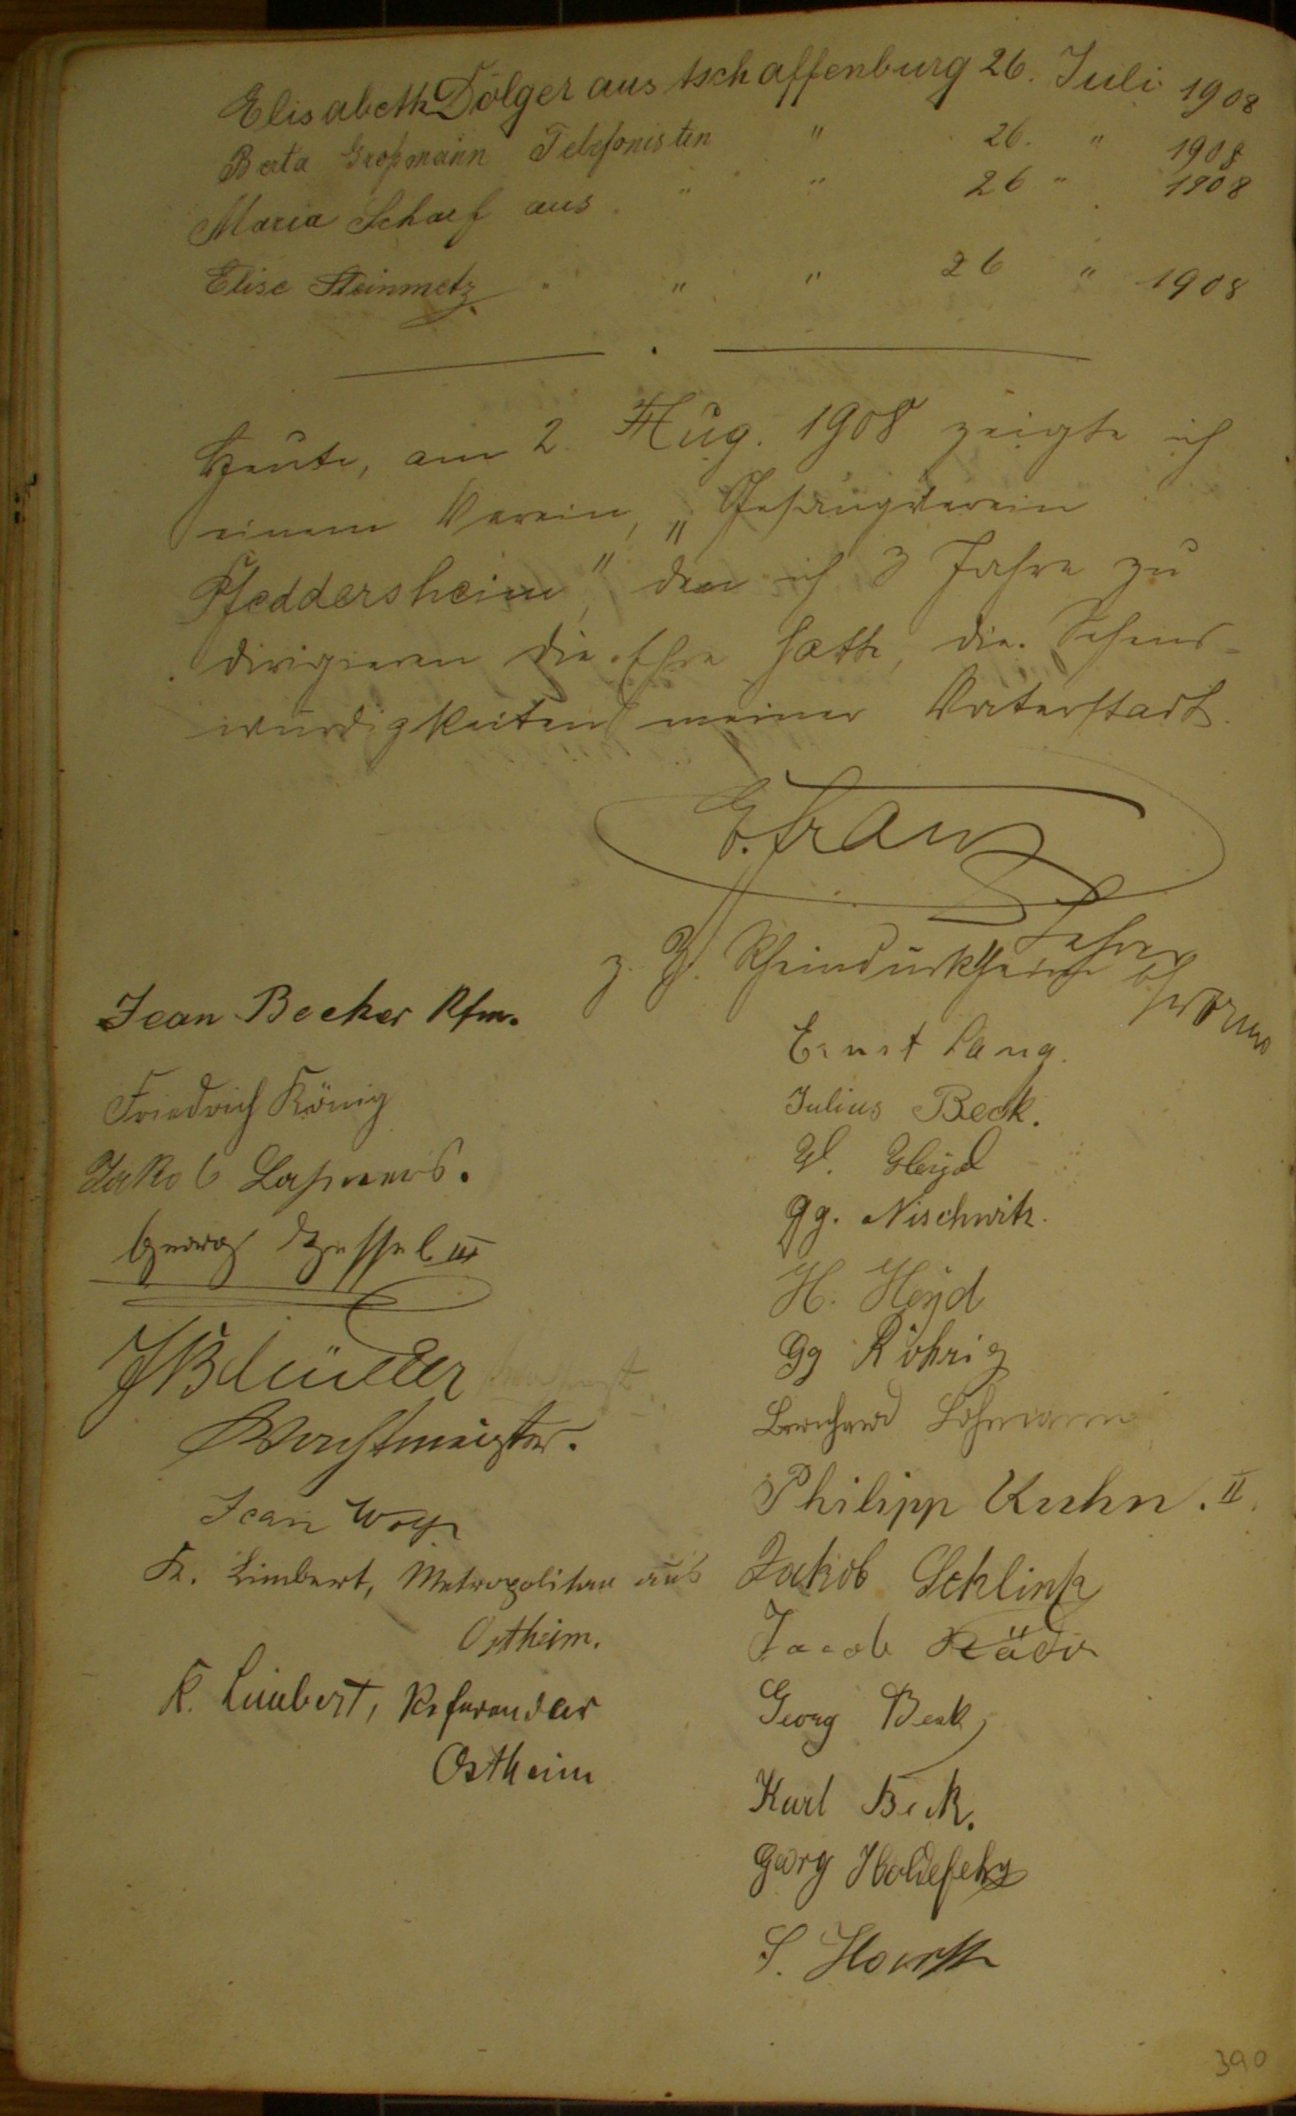 Elisabeth Dölger aus Aschaffenburg 26. Juli 1908
Berta Großmann Telefonistin " 26. " 1908
Maria Scharf aus " " 26 " 1908
Elise Steinmetz " " " 26 " 1908
Heute, am 2. Aug. 1908 zeigte ich
einem Verein, „Gesangverein
Pfeddersheim", den ich 3 Jahre zu
dirigieren die Ehre hatte, die Sehens-
würdigkeiten meiner Vaterstadt.
E. Franz
Lehrer
z. Z. Rheindürkheim b/Worms
Jean Becker Kfm.
Friedrich König
Jakob
Georg Hessel III
Wachtmeister.
Jean Wolf
K. Limbert, Metropolitan aus
Ostheim.
K. Limbert, Referendar
Ostheim
Ernst Lang.
Julius Beck.
Heyd
Gg. Nischwitz.
H. Heyd
Gg Röhrig
Bernhard Lohmann
Philipp Kuhn. II.
Jakob Schlink
Jacob Räder
Georg Beck
Karl Beck.
Georg Holdefehr
S. Horsth
390